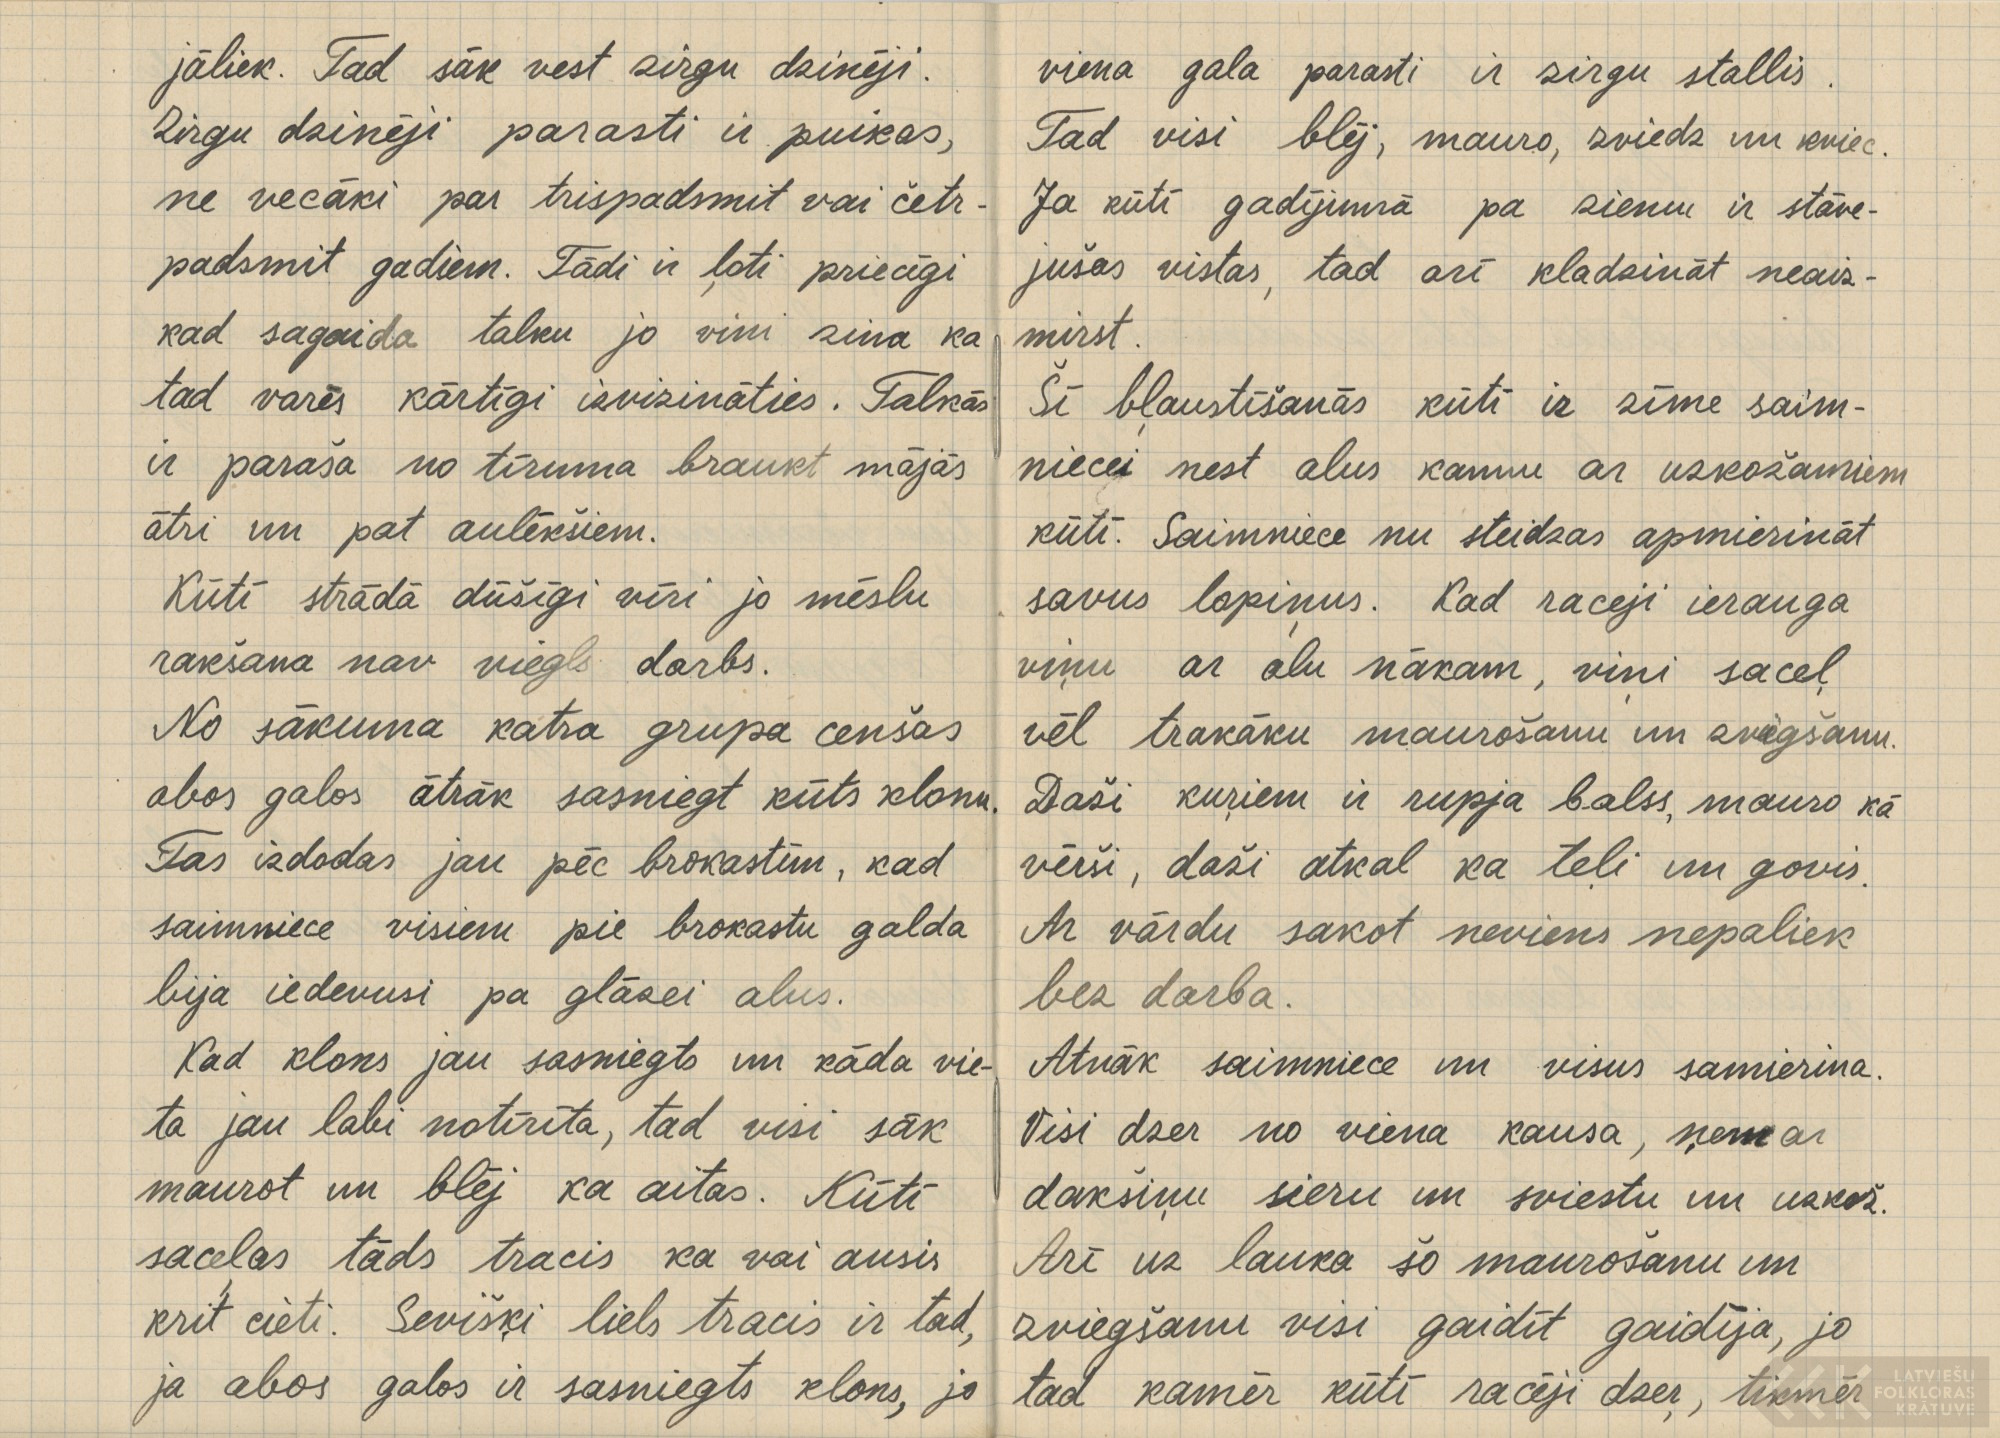 jāliek. Tad sāk vest zirgu dzinēji.
Zirgu dzinēji parasti ir puikas,
ne vecāki par trispadsmit vai četr-
padsmit gadiem. Tādi ir ļoti priecīgi
kad sagaida talku jo vini zina ka
tad varēs kārtīgi izvizināties. Talkās
ir paraša no tīruma braukt mājās
ātri un pat aulēkšiem.
Kūtī strādā dūšīgi vīri jo mēslu
rakšana nav viegls darbs.
No sākuma katra grupa cenšas
abos galos ātrāk sasniegt kūts klonu.
Tas izdodas jau pēc brokastīm, kad
saimniece visiem pie brokastu galda
bija iedevusi pa glāzei alus.
Kad klons jau sasniegts un kāda vie-
ta jau labi notīrīta, tad visi sāk
maurot un blēj ka aitas. Kūtī
saceļas tāds tracis ka vai ausis
krīt cieti. Sevišķi liels tracis ir tad,
ja abos galos ir sasniegts klons, jo
viena gala parasti ir zirgu stallis.
Tad visi blēj, mauro, zviedz un kviec.
Ja kūtī gadījumā pa ziemu ir stāve-
jušas vistas, tad arī kladzināt neaiz-
mirst.
Šī bļaustīšanās kūtī ir zīme saim-
niecei nest alus kannu ar uzkožamiem
kūtī. Saimniece nu steidzas apmierināt
savus lopiņus. Kad raceji ierauga
viņu ar alu nākam, viņi saceļ
vēl trakāku maurošanu un zviegšanu.
Daži kuŗiem ir rupja balss, mauro kā
vērši, daži atkal ka teļi un govis.
Ar vārdu sakot neviens nepaliek
bez darba.
Atnāk saimniece un visus samierina.
Visi dzer no viena kausa, ņem ar
dakšiņu sieru un sviestu un uzkož.
Arī uz lauka šo maurošanu un
zviegšanu visi gaidīt gaidīja, jo
tad kamēr kūtī racēji dzeŗ, tikmēr
LATVIEŠU
FOLKLORAS
KRĀTUVE